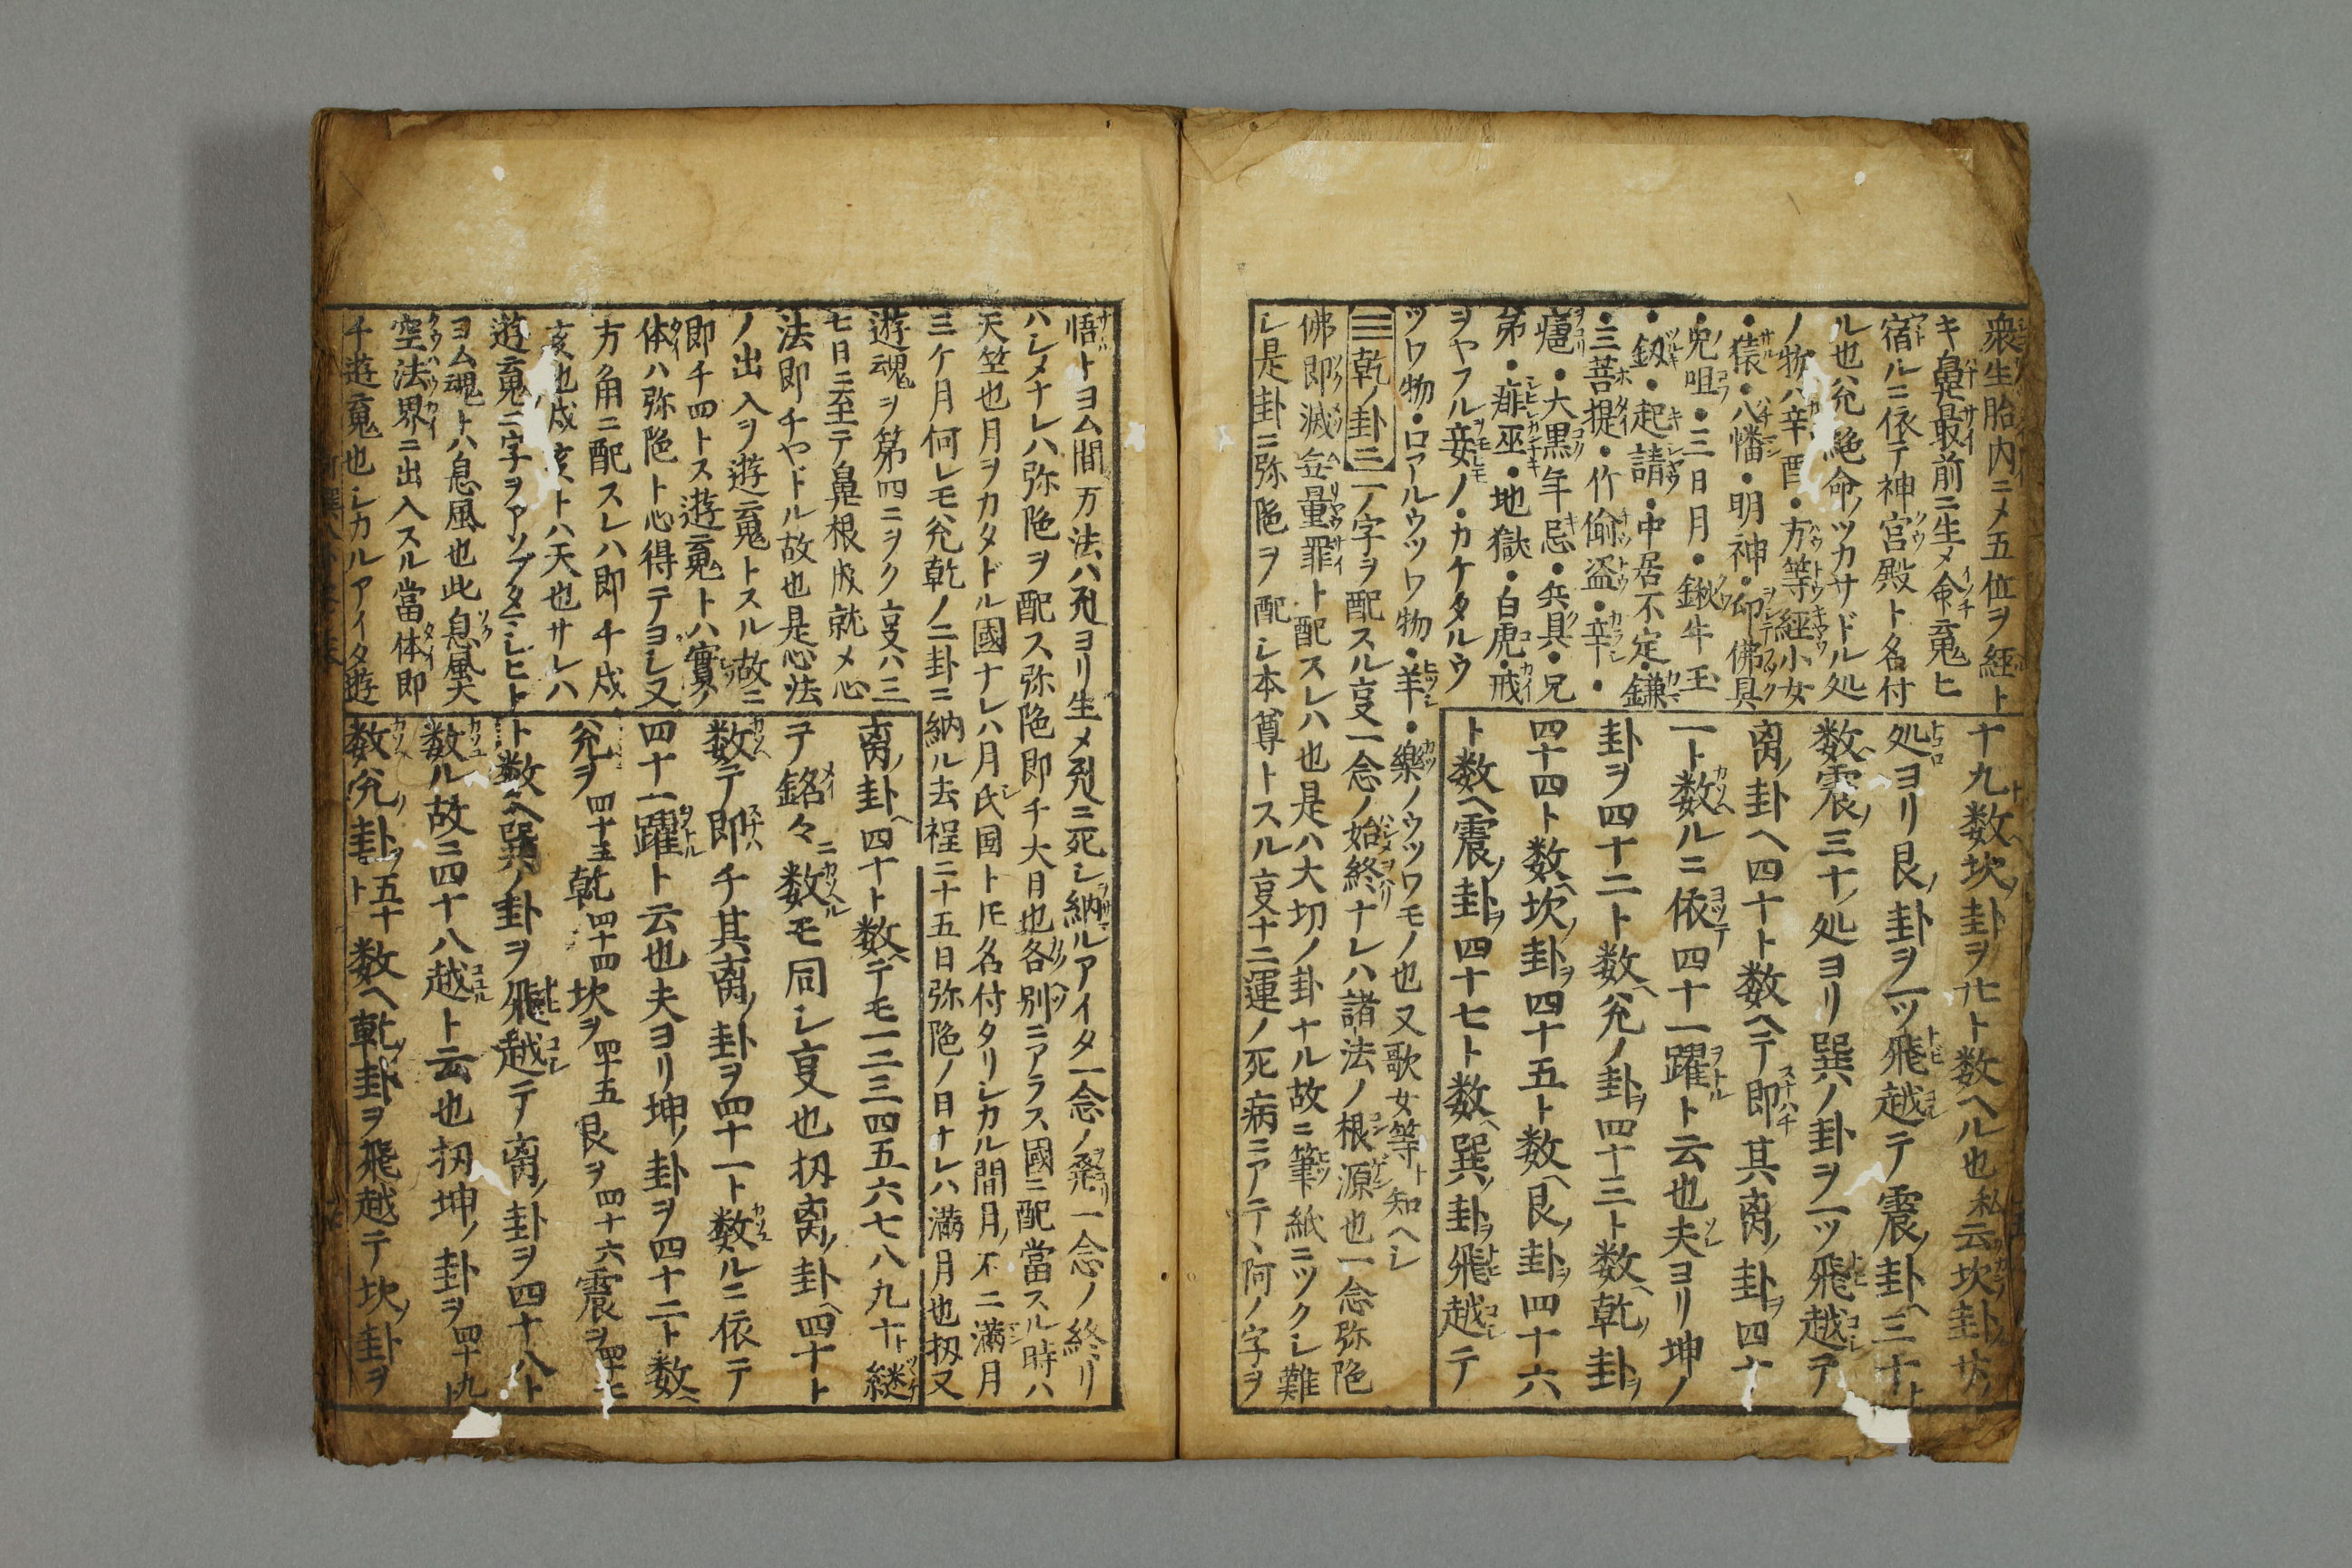 衆生胎内ニメ五位ヲ經ト
キ鼻最前ニ生メ命䰟ヒ
宿ルニ依テ神宮殿ト名付
ル也兊絶命ノツカサドル処
ノ物ハ辛酉・方等經小女
・猿・八幡・明神・仰佛具
・児咀・三日月・鍬牛玉
・釼・起請・中居不定・鎌
・三菩提・竹偷盗・辛・
瘧・大黒年忌・兵具・兄
弟・痱巫・地獄・白虎・戒
ヲヤフル妾ノ・カケタルウ
ツワ物・ロアールウツワ物・羊・樂ノウツワモノ也又歌女等ト知ヘシ
☰乾ノ卦ニ一ノ字ヲ配スル㕝一念ノ始終ナレハ諸法ノ根源也一念弥陁
佛即滅無量罪ト配スレハ也是ハ大切ノ卦ナル故ニ筆紙ニツクシ難
シ是卦ニ弥陁ヲ配シ本尊トスル㕝十二運ノ死病ニアテヽ阿ノ字ヲ
十九数坎ノ卦ヲ廿ト数ヘル也私云坎卦
処ヨリ艮ノ卦ヲ一ツ飛越テ震ノ卦ヘ三十ト
数震ノ三十ノ処ヨリ巽ノ卦ヲ一ツ飛越テ
离ノ卦ヘ四十ト数ヘテ即其离ノ卦ヲ四十
一ト数ルニ依四十一躍ト云也夫ヨリ坤ノ
卦ヲ四十二ト数ヘ兊ノ卦ヲ四十三ト数ヘ乾ノ卦ヲ
四十四ト数ヘ坎ノ卦ヲ四十五ト数ヘ艮ノ卦ヲ四十六
ト数ヘ震ノ卦ヲ四十七ト数ヘ巽ノ卦ヲ飛越テ
悟トヨム間万法ハ刋ヨリ生メ刋ニ死シ納ルアイタ一念ノ發リ一念ノ終リ
ハシメナレハ弥陁ヲ配ス弥陁即チ大日也各別ニアラス國ニ配當スル時ハ
天竺也月ヲカタドル國ナレハ月氏国ト㕥名付タリシカル間月ノ不二満月
三ケ月何レモ兊乾ノ二卦ニ納ル去程ニ十五日弥陁ノ日ナレハ満月也扨又
遊魂ヲ第四ニヲク㕝ハ三
七日ニ至テ鼻根成就メ心
法即チヤドル故也是心法
ノ出入ヲ遊䰟トスル故ニ
即チ四トス遊䰟トハ實ノ
体ハ弥陁ト心得テヨシ又
方角ニ配スレハ即チ戌
亥也戌亥トハ天也サレハ
遊䰟ニ字ヲアソブタマシヒト
ヨム魂トハ息風也此息風天
空法界ニ出入スル當体即
チ遊䰟也シカルアイタ遊
离ノ卦ヘ四十ト数ヘテモ一二三四五六七八九十ト継
テ銘々ニ数モ同シ㕝也扨离ノ卦ヘ四十ト
数テ即チ其离ノ卦ヲ四十一ト数ルニ依テ
四十一躍ト云也夫ヨリ坤ノ卦ヲ四十二ト数ヘ
兊ヲ四十三乾四十四坎ヲ四十五艮ヲ四十六震ヲ四十七
ト数ヘ巽ノ卦ヲ飛越テ离ノ卦ヲ四十八ト
数ル故ニ四十八越ト云也扨坤ノ卦ヲ四十九ト
数兊ノ卦ヲ五十ト数ヘ乾ノ卦ヲ飛越テ坎ノ卦ヲ